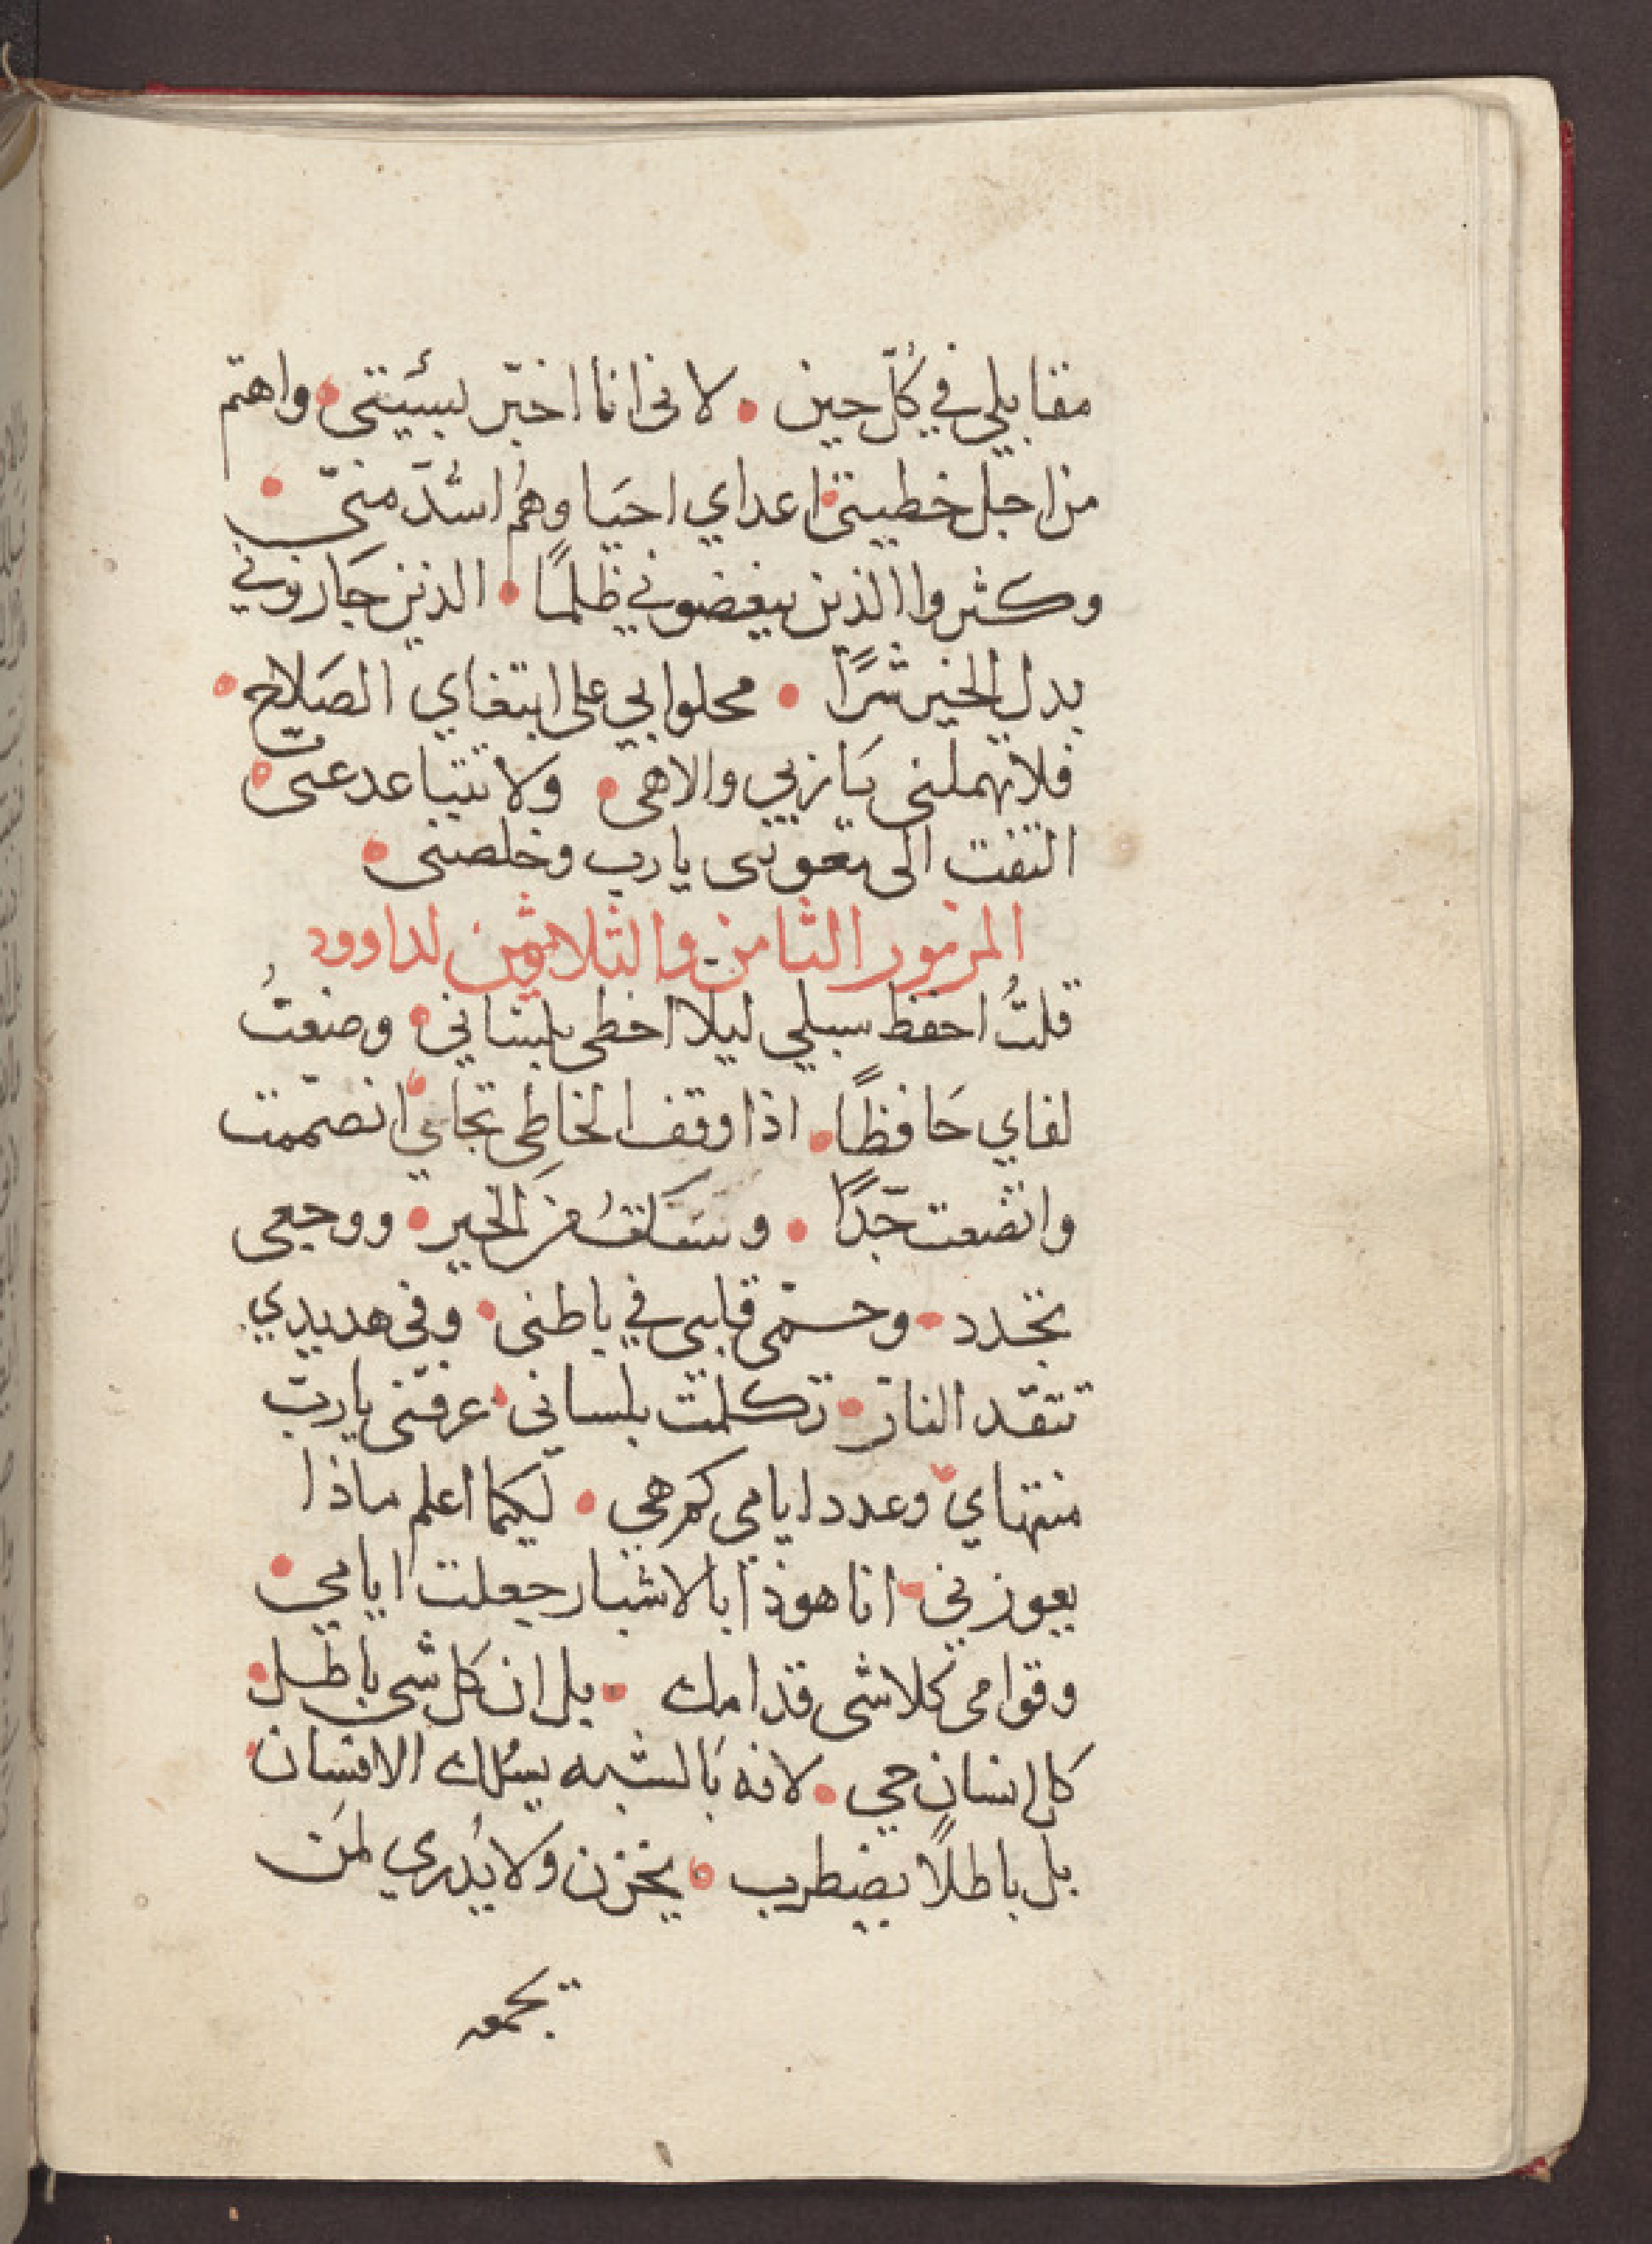 مقابلي في كُلّ حين • لاني انا اخبّر بسيئتي • واهتم
من اجل خطيتي • اعداي احيَا وهُم اشدّ منيّ •
وكثروا الذين يبغضوني ظلمًا • الذين جَازوني
بدل الخير شرًا • محلوا بي على ابتغاي الصَلاح •
فلا تهملني يَا ربي والاهي • ولا تتباعد عنّي •
التفت الى معونتى يا رب وخلصني •
المزمور الثامن والثلاثين لداوود
قلتُ احفظ سبلي ليلا اخطى بلساني • وضعتُ
لفاي حَافظًا • اذا وقف الخاطي تجاهي • انصمّمت
واتضعت جّدًا • وسَكتُ عن الخير • ووجعى
تجدد • وحمّى قلبي في باطنى • وفي هديدي
تتقد النار • تكلمت بلساني • عرفنّى يا ربّ
منتهاي • وعدد ايامي كم هي • لكيما اعلم ماذا
يعوزني • انا هوذا بالاشبار جعلت ايامي •
وقوامي كلاشى قدامك • بل ان كل شي باطل •
كل انسان حي • لانه بَالشبه يسلك الانسان •
بل باطلًا يضطرب • يخزن ولا يَدري لمَن
يجمعه